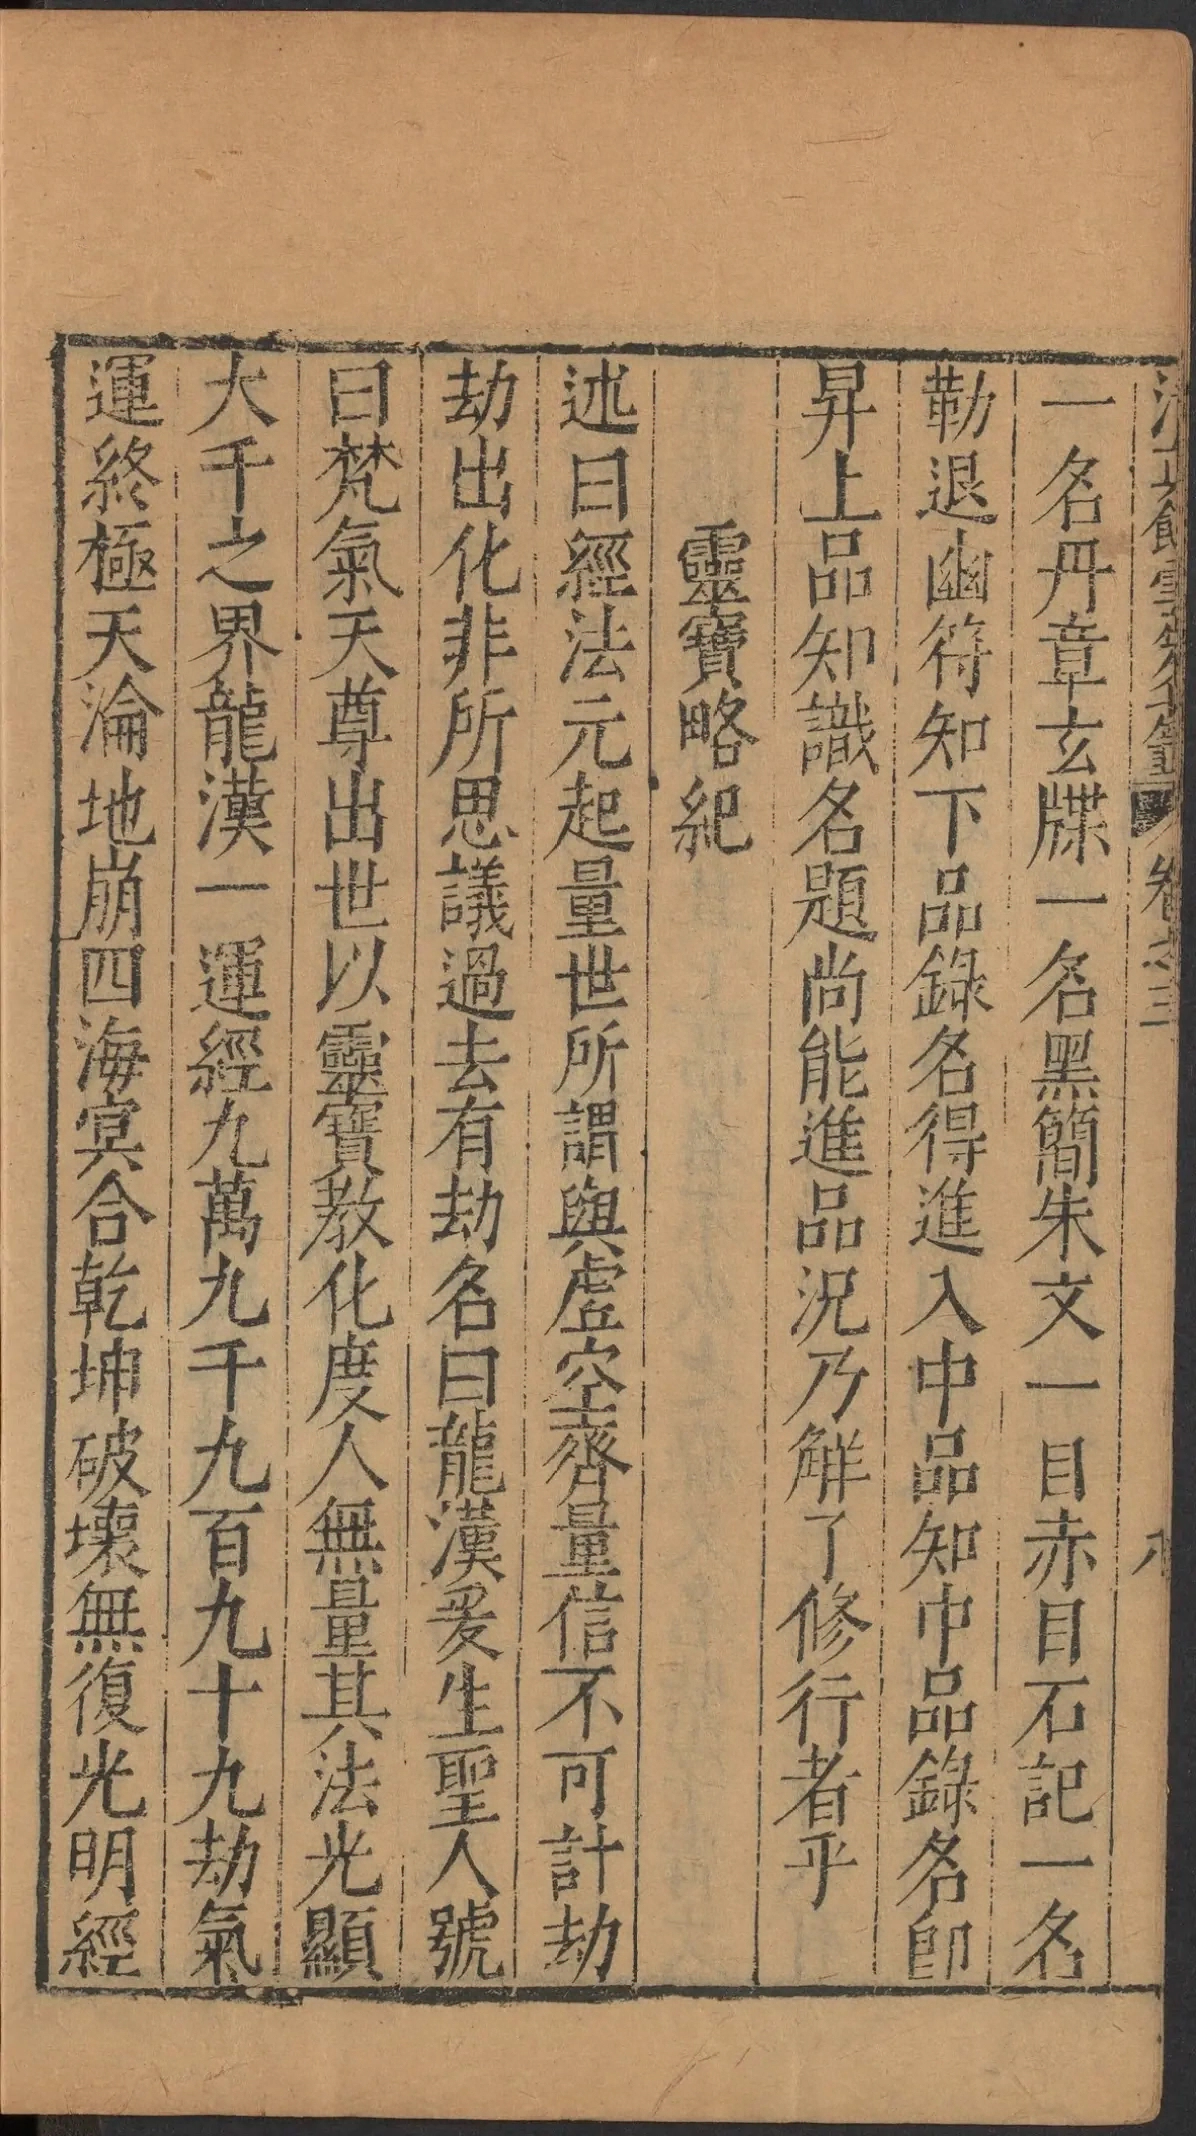 清真館雲笈七籤 卷之三 八
一名丹章玄牒一名黑簡朱文一目赤目石記一名
勒退幽符知下品錄名得進入中品知中品錄名即
昇上品知識名題尚能進品況乃解了修行者乎
靈寶略紀
述曰經法元起量世所謂與虛空齊量信不可計劫
劫出化非所思議過去有劫名曰龍漢爰生聖人號
曰梵氣天尊出世以靈寶教化度人無量其法光顯
大千之界龍漢一運經九萬九千九百九十九劫氣
運終極天淪地崩四海冥合乾坤破壞無復光明經